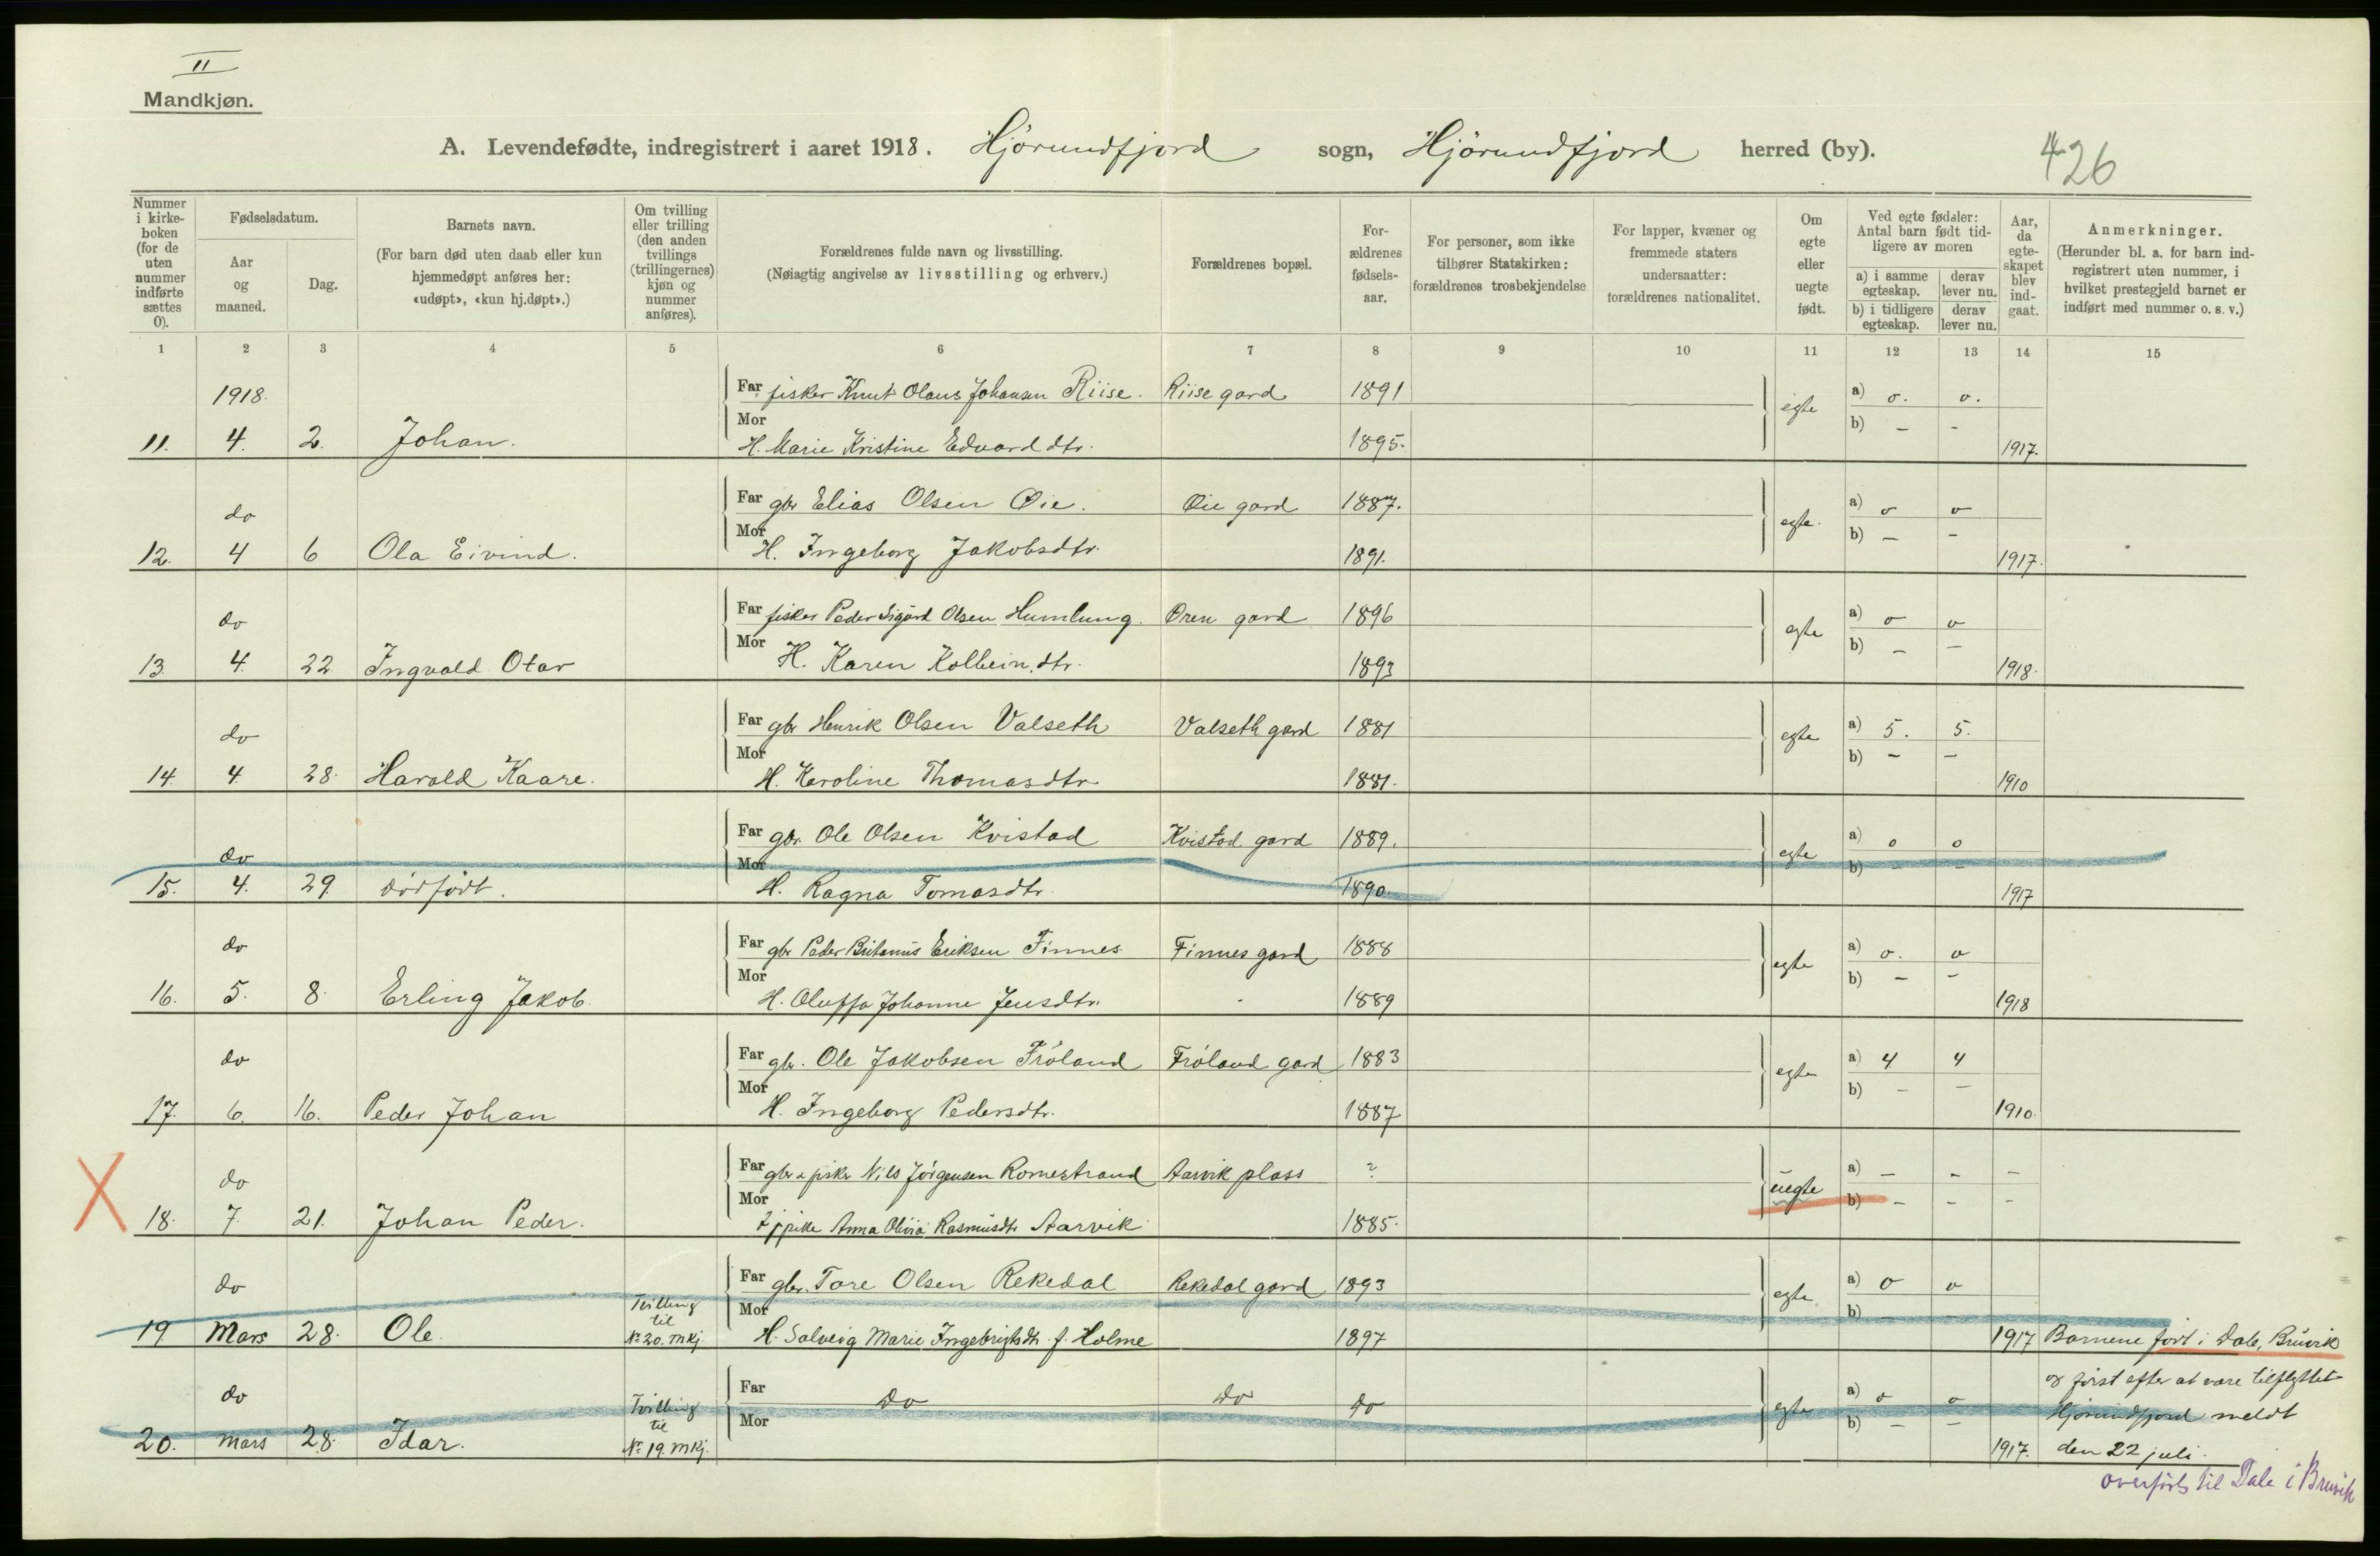 II
Mandkjøn.
A. Levendefødte, indregistrert i aaret 1918. Hjørundfjord sogn, Hjørundfjord herred (by).
426
Nummer i kirkeboken (for de uten nummer indførte sættes 0).
Fødselsdatum.
Aar og maaned.
Dag.
Barnets navn.
(For barn død uten daab eller kun hjemmedøpt anføres her: «udøpt», «kun hj.døpt».)
Om tvilling eller trilling (den anden tvillings (trillingernes) kjøn og nummer anføres).
Forældrenes fulde navn og livsstilling.
(Nøiagtig angivelse av livsstilling og erhverv.)
Forældrenes bopæl.
Forældrenes fødselsaar.
For personer, som ikke tilhører Statskirken: forældrenes trosbekjendelse
For lapper, kvæner og fremmede staters undersaatter: forældrenes nationalitet.
Om egte eller uegte født.
Ved egte fødsler: Antal barn født tidligere av moren
a) i samme egteskap.
derav lever nu.
b) i tidligere egteskap.
derav lever nu.
Aar, da egteskapet blev indgaat.
Anmerkninger.
(Herunder bl. a. for barn indregistrert uten nummer, i hvilket prestegjeld barnet er indført med nummer o. s. v.)
1 2 3 4 5 6 7 8 9 10 11 12 13 14 15
1918. Far fisker Knut Olaus Johansen Riise. Riise gard 1891 egte a) o. o.
11. 4. 2. Johan. Mor H. Marie Kristine Edvard dtr. 1895. b) – – 1917.
do Far gbr Elias Olsen Øie. Øie gard 1887. egte. a) o o
12. 4 6 Ola Eivind. Mor H. Ingeborg Jakobsdtr. 1891. b) – – 1917.
do Far fisker Peder Sigurd Olsen Humlung. Ören gard 1896 egte a) o o
13. 4. 22. Ingvald Otar Mor H. Karen Kolbein.dtr. 1893 b) – – 1918.
do Far gbr Henrik Olsen Valseth Valseth gard 1881 egte a) 5. 5.
14. 4. 28. Harald Kaare. Mor H. Karoline Thomasdtr. 1881. b) – – 1910
do Far gbr. Ole Olsen Kvistad Kvistad gard 1889. egte a) o o
15. 4. 29 dødfødt. Mor H. Ragna Tomasdtr. 1890. b) – – 1917
do Far gbr Peder Eriksen Finnes Finnes gard 1888 egte a) o. o
16. 5. 8. Erling Jakob. Mor H. Oluffa Johanne Jensdtr. 1889 b) – – 1918
do Far gbr. Ole Jakobsen Fröland Fröland gard 1883 egte a) 4 4
17. 6. 16. Peder Johan Mor H. Ingeborg Pedersdtr. 1887 b) – – 1910.
X do Far gbr & fisker Nils Jörgensen Romestrand Aarvik plass ? uegte a) – – –
18. 7. 21. Johan Peder. Mor pike Anna Olivia Rasmusdtr Aarvik 1885. b) – – –
do Far gbr. Tore Olsen Rekedal Rekedal gard 1893 egte a) o o
19 Mars 28. Ole. Tvilling til No 20. mkj. Mor H. Solveig Marie Ingebrigtsdtr. f. Holme 1897 b) – – 1917 Barnene født i Dale, Bruvik
do Far do do do egte a) o o og först efter at være tilflyttet
20. Mars 28. Idar. Tvilling til No 19. mkj. Mor b) – – 1917. Hjörundfjord meldt
den 22 juli.
overförts til Dale i Bruvik